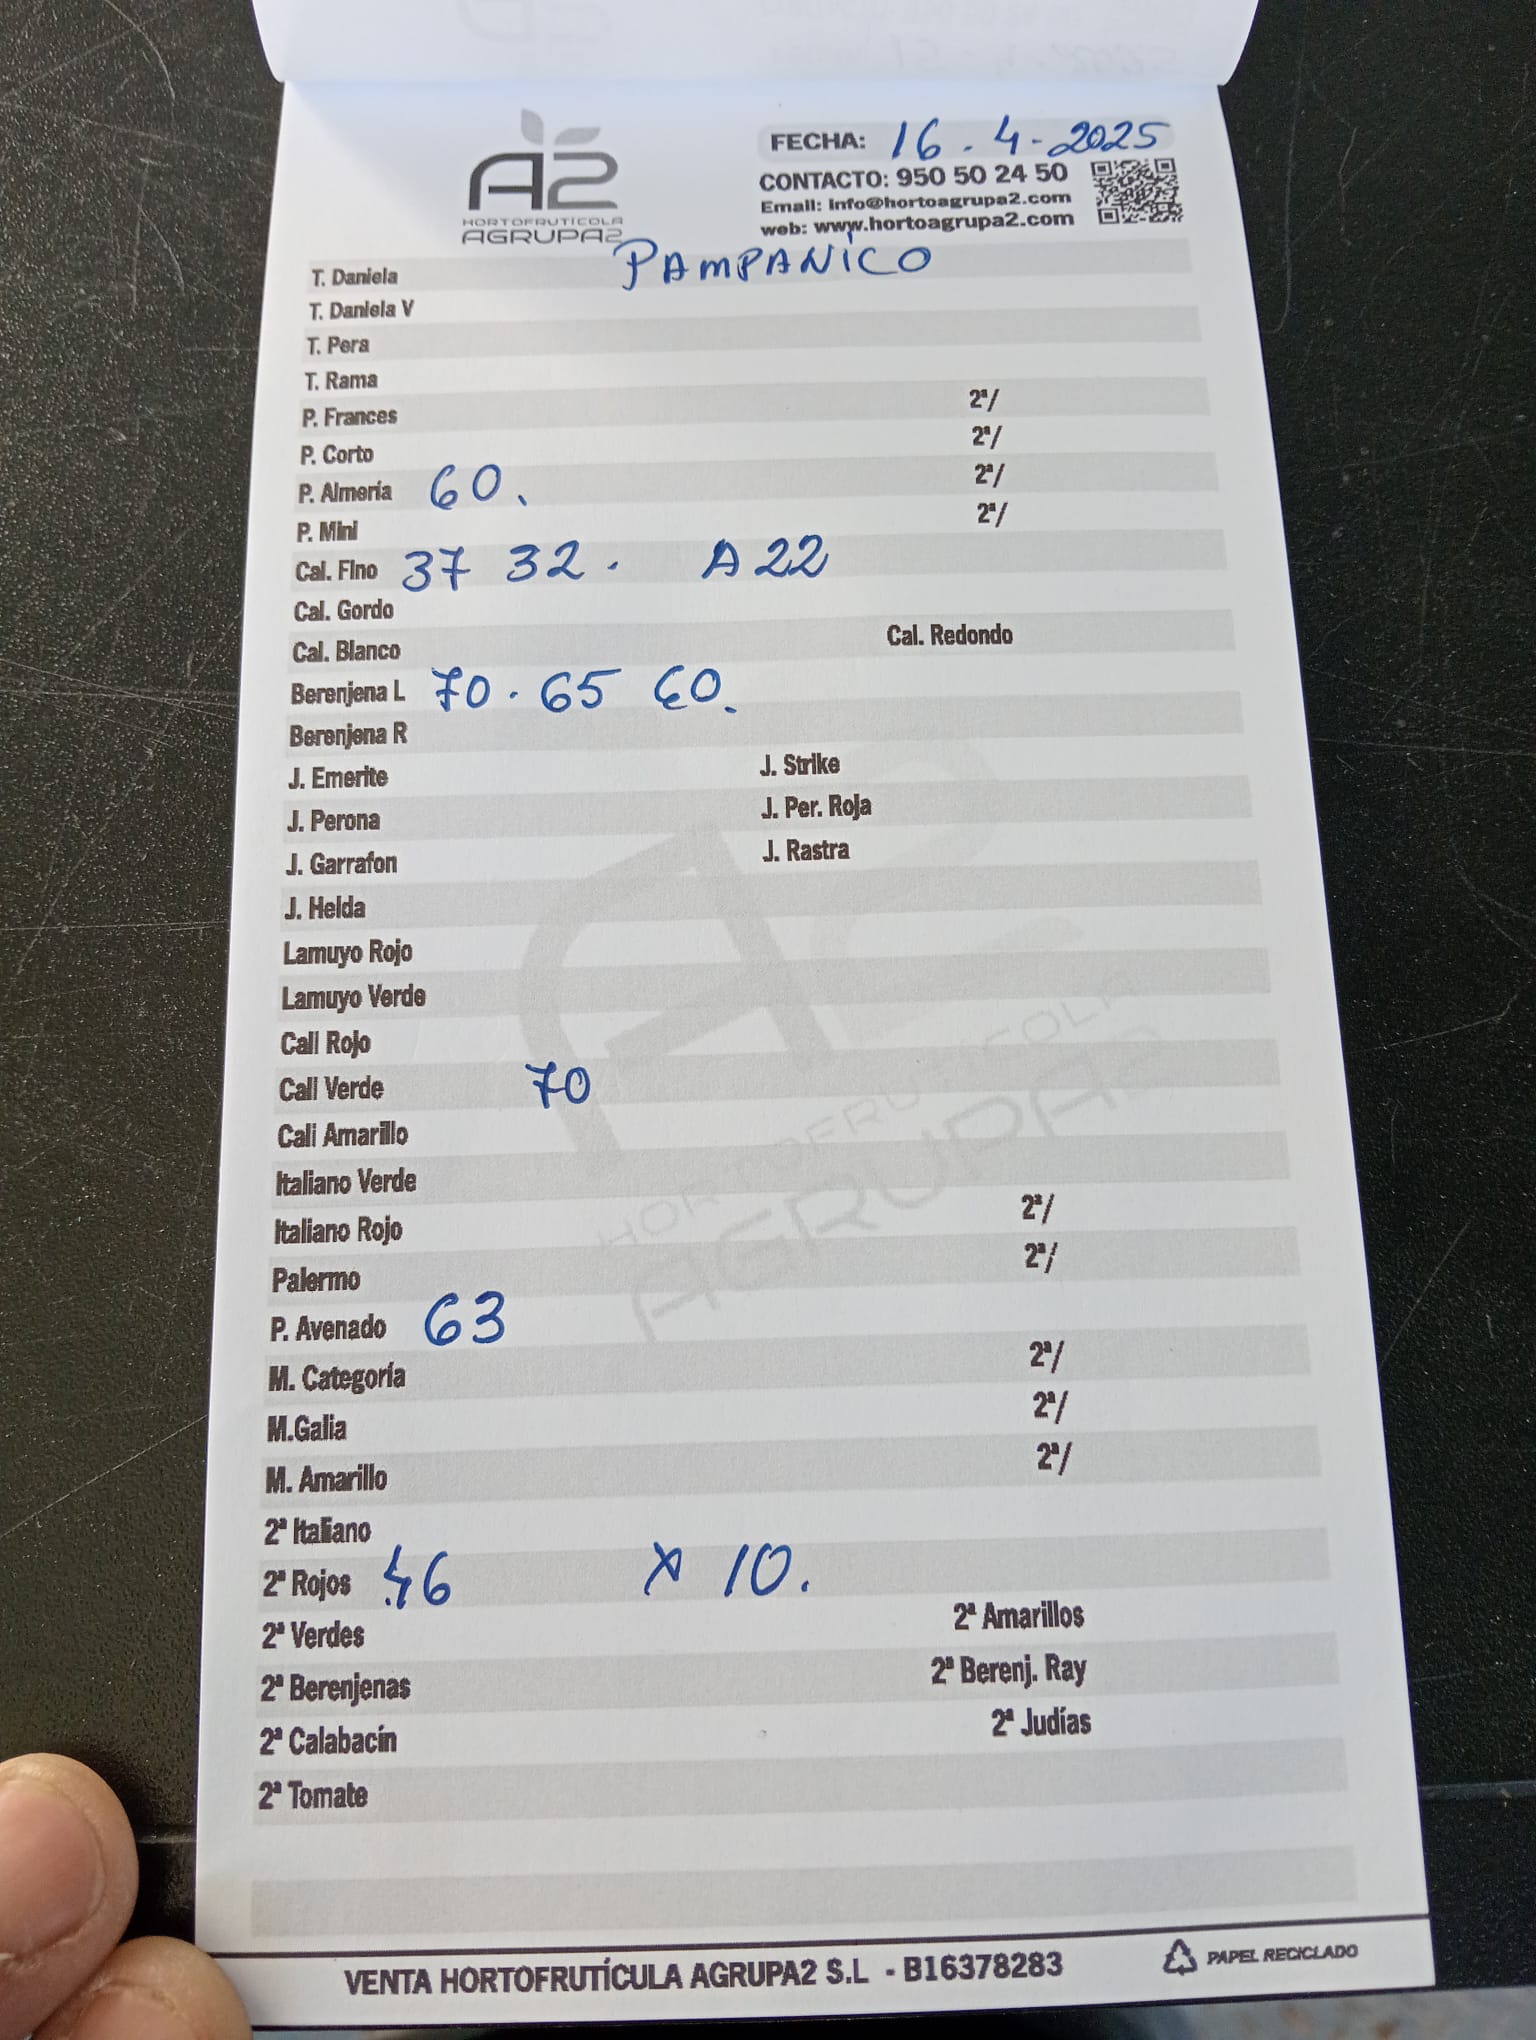 A2
HORTOFRUTÍCOLA
AGRUPA2
FECHA: 16.4-2025
CONTACTO: 950 50 24 50
Email: info@hortoagrupa2.com
web: www.hortoagrupa2.com
PAMPANICO
T. Daniela
T. Daniela V
T. Pera
T. Rama
P. Frances 2ª/
P. Corto 2ª/
P. Almería 60. 2ª/
P. Mini 2ª/
Cal. Fino 37 32. A 22
Cal. Gordo
Cal. Blanco Cal. Redondo
Berenjena L 70. 65 60.
Berenjena R
J. Emerite J. Strike
J. Perona J. Per. Roja
J. Garrafon J. Rastra
J. Helda
Lamuyo Rojo
Lamuyo Verde
Cali Rojo
Cali Verde 70
Cali Amarillo
Italiano Verde
Italiano Rojo 2ª/
Palermo 2ª/
P. Avenado 63
M. Categoría 2ª/
M.Galia 2ª/
M. Amarillo 2ª/
2ª Italiano
2ª Rojos 46 x 10.
2ª Verdes 2ª Amarillos
2ª Berenjenas 2ª Berenj. Ray
2ª Calabacín 2ª Judías
2ª Tomate
HORTOFRUTICOLA
AGRUPA2
VENTA HORTOFRUTÍCULA AGRUPA2 S.L - B16378283
PAPEL RECICLADO